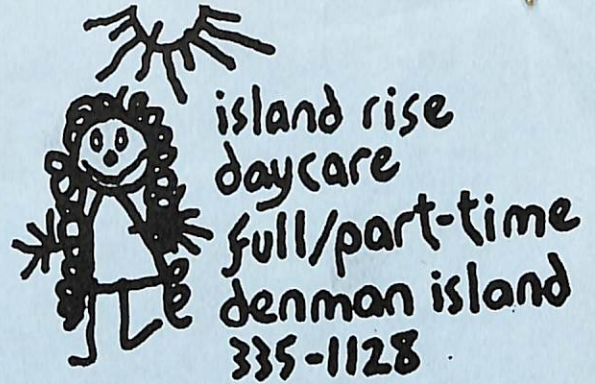 island rise
daycare
full/part-time
denman island
335-1128